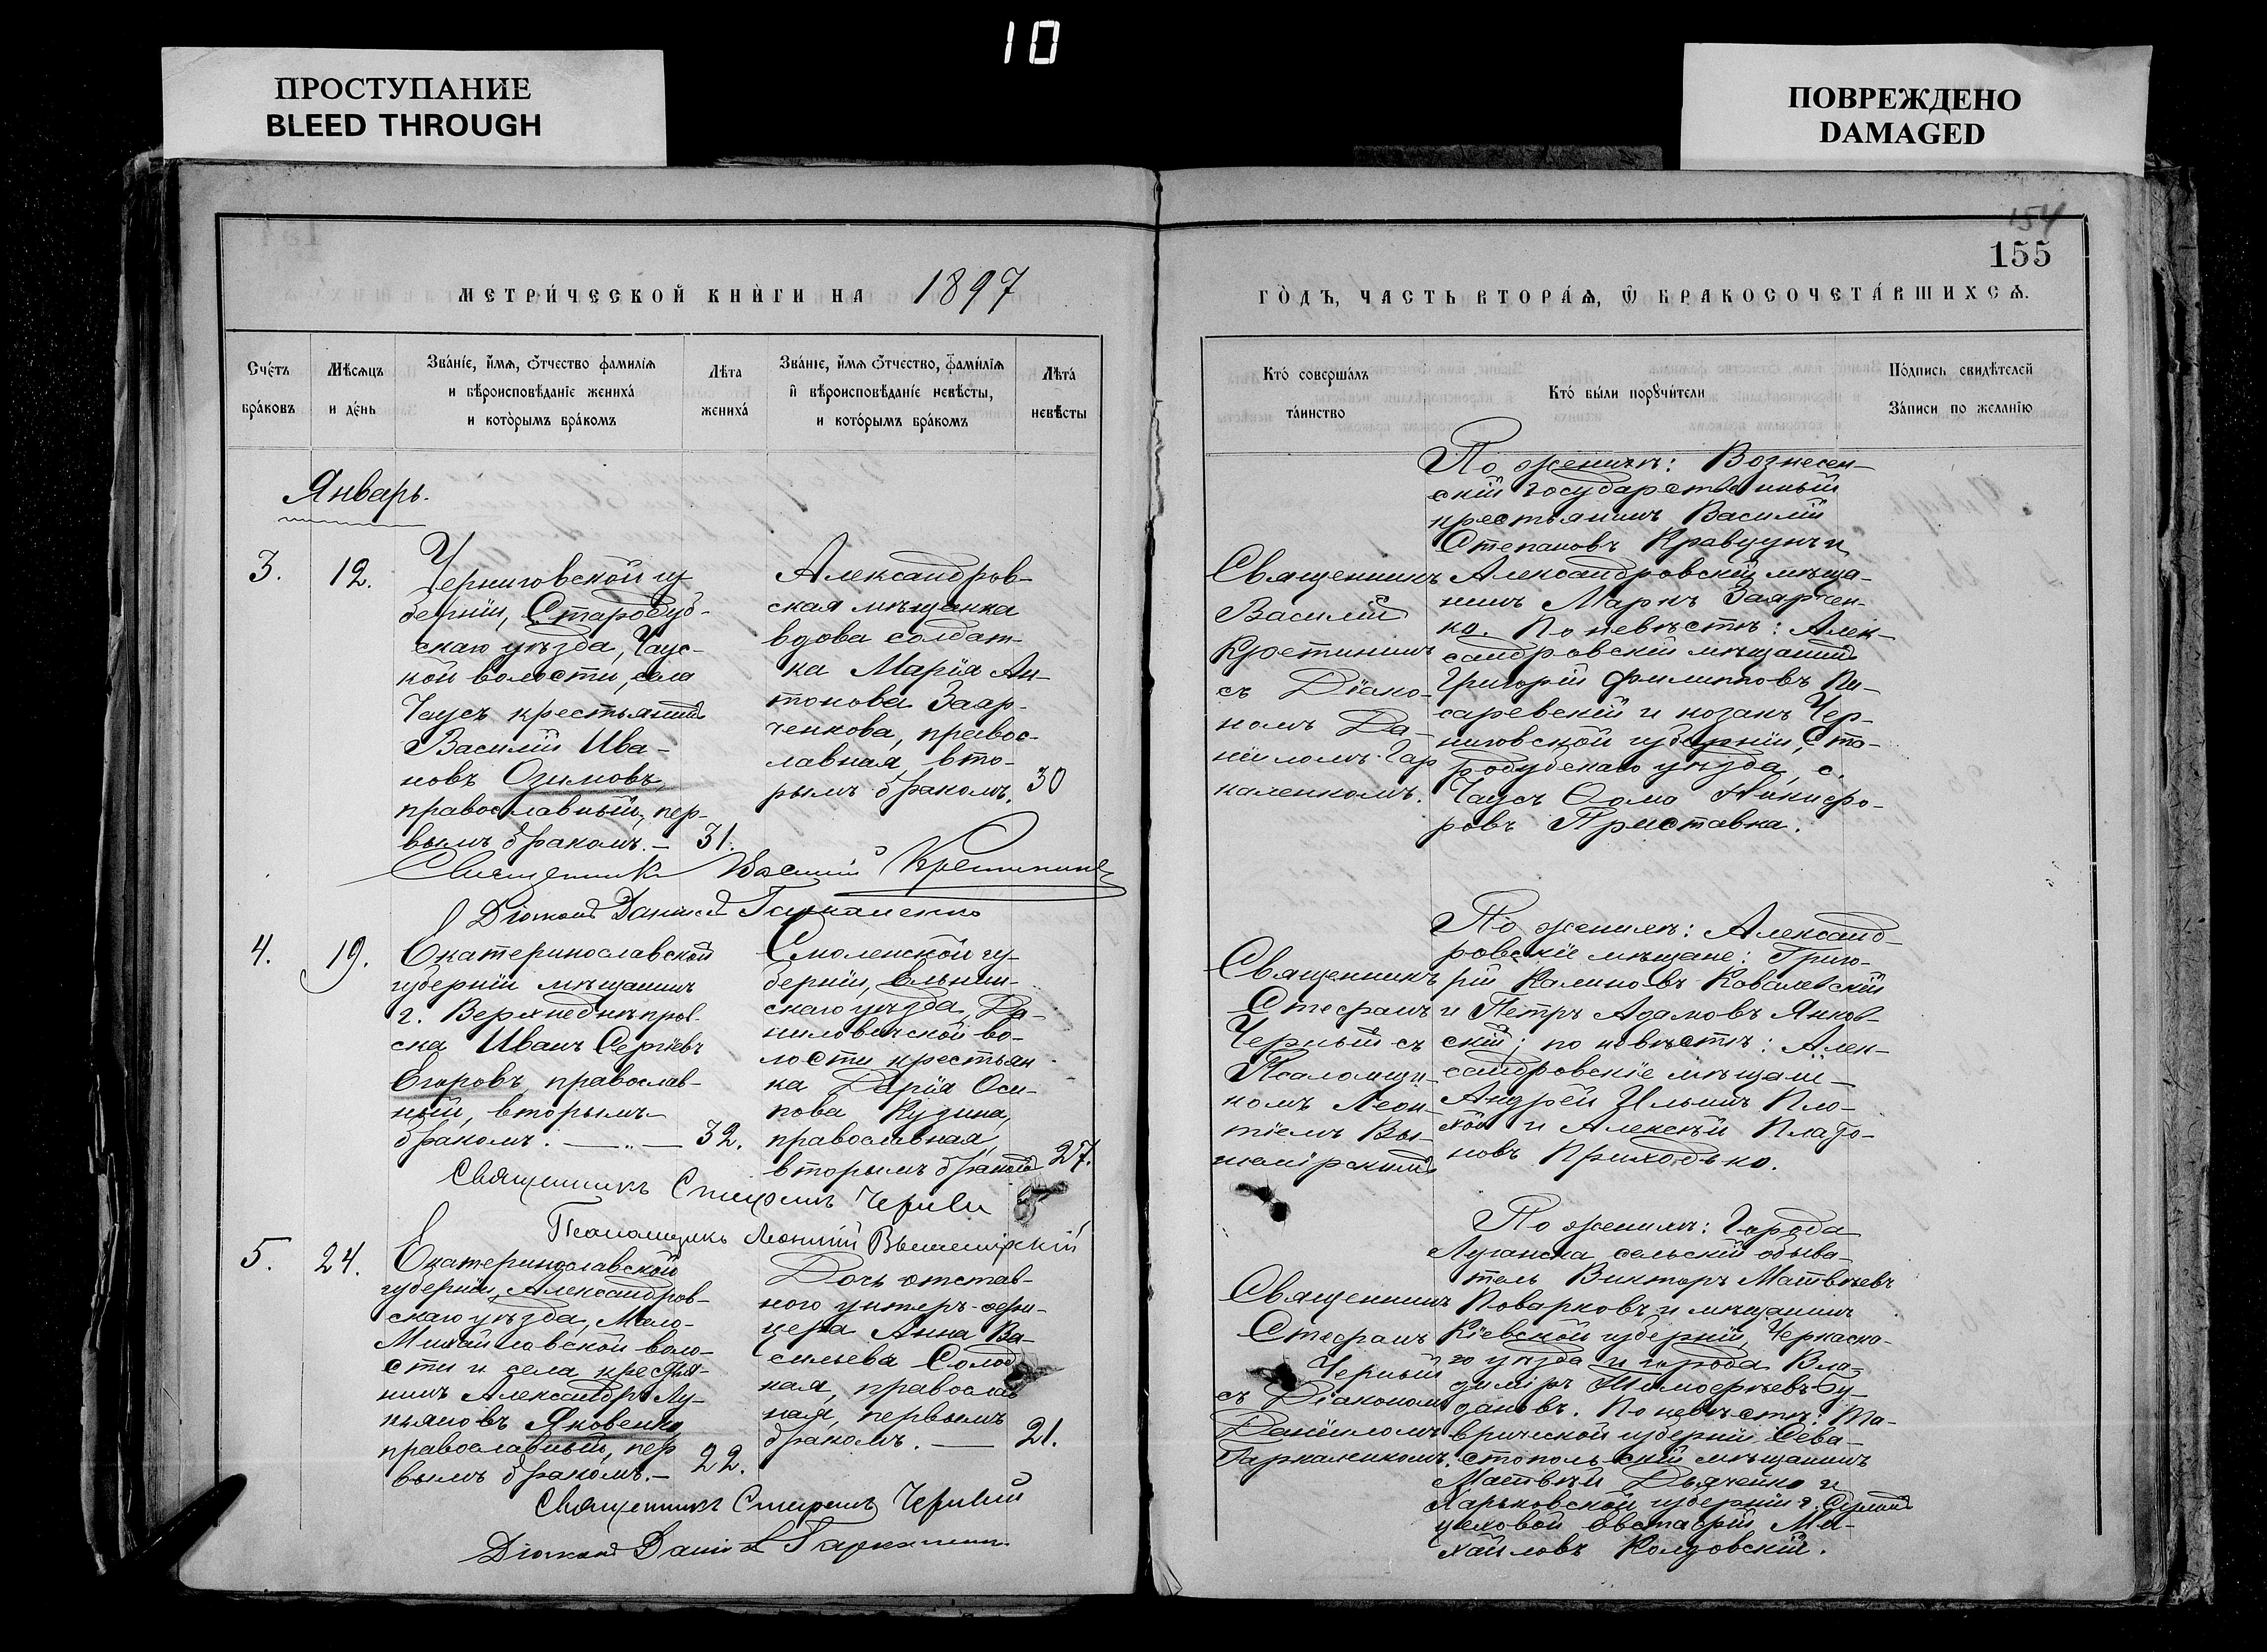 10
ПРОСТУПАНИЕ
BLEED THROUGH
ПОВРЕЖДЕНО
DAMAGED
154
155
МЕТРИ́ЧЕСКОЙ КНЍГИ НА 1897
ГО̀ДЪ, ЧАСТЬ ВТОРА́Ѧ, Ѿ БРАКОСОЧЕТА́ВШИХСѦ.
Сче́тъ
бра́ковъ
Мѣ́сѧцъ
и де́нь
Зва́нїе, и҆́мѧ, ѻ҆́тчество фами́лїѧ
и вѣроисповѣ́данїе жениха̀
и кото́рымъ бра́комъ
Лѣта
жениха̀
Зва́нїе, и҆́мѧ ѻ҆́тчество, фами́лїѧ
и҆ вѣроисповѣ́данїе невѣ́сты,
и кото́рымъ бра́комъ
Лѣта̀
невѣ́сты
Кто̀ соверша́лъ
та́инство
Кто̀ бы́ли порꙋчи́тели
По́дпись свидѣ́телей
За́писи по жела́нїю
Январь.
3.
12.
Черниговской гу
берніи, Стародуб-
скаго уѣзда, Чаус-
кой волости, села
Чаусъ крестьянинъ
Василій Ива-
новъ Озимовъ,
православный, пер-
вымъ бракомъ. — 31.
Александров-
ская мѣщанка
вдова солдат-
ка Марія Ан-
тонова Заяр-
ченкова, правос-
лавная, вто-
рымъ бракомъ. 30
Священникъ
Василій
Кретининъ
съ Діако-
номъ Да-
ніиломъ Гар
каленкомъ.
По женихѣ: Вознесен-
скій государственный
крестьянинъ Василій
Степановъ Кравцунъ и
Александровскій мѣща-
нинъ Маркъ Заярчен-
ко. По невѣстѣ: Алек-
сандровскій мѣщанинъ
Григорій Филипповъ Пи-
саревскій и козакъ Чер-
ниговской губерніи, Ста-
родубскаго уѣзда, с.
Чаусъ Ѳома Никифо-
ровъ Приставка.
Священникъ Василій Кретининъ
Діаконъ Даніилъ Гаркаленко
4.
19.
Екатеринославской
губерніи мѣщанинъ
г. Верхнеднѣпров-
ска Иванъ Сергіевъ
Егоровъ православ-
ный, вторымъ
бракомъ. — „ — 32.
Смоленской гу-
берніи, Ельнин-
скаго уѣзда, Да-
ниловичской во-
лости крестьян
ка Дарія Оси-
пова Кузина,
православная,
вторымъ бракомъ 27.
Священникъ
Стефанъ
Черный съ
Псаломщи-
комъ Леон-
тіемъ Вы-
шемірскимъ
По женихѣ: Александ-
ровскіе мѣщане: Григо-
рій Калиновъ Ковалевскій
и Петръ Адамовъ Янков-
скій; по невѣстѣ: Алек-
сандровскіе мѣщане
Андрей Ильинъ Пло-
хой и Алексѣй Плато-
новъ Приходько.
Священникъ Стефанъ Черный
Псаломщикъ Леонтій Вышемірскій
5.
24.
Екатеринославской
губерніи, Александров-
скаго уѣзда, Мало-
Михайловской воло-
сти и села, крестья-
нинъ Александръ Лу-
кьяновъ Яковенко
православный, пер
вымъ бракомъ. — 22.
Дочь отстав-
ного унтеръ-офи-
цера Анна Ва-
сильева Солод
кая, православ
ная, первымъ
бракомъ. — 21.
Священникъ
Стефанъ
Черный
съ Діакономъ
Даніиломъ
Гаркаленкомъ.
По женихѣ: Города
Луганска сельскій обыва-
тель Викторъ Матвѣевъ
Поварковъ и мѣщанинъ
Кіевской губерніи, Черкаска-
го уѣзда и города Вла-
диміръ Тимоѳеевъ Бу-
дановъ. По невѣстѣ: Та-
врической губерніи, Сева-
стопольскій мѣщанинъ
Матвѣй Дьяченко и
Харьковской губерніи г. Сумъ
цеховой Евстафій Ми-
хайловъ Колдовскій.
Священникъ Стефанъ Черный
Діаконъ Даніилъ Гаркаленко